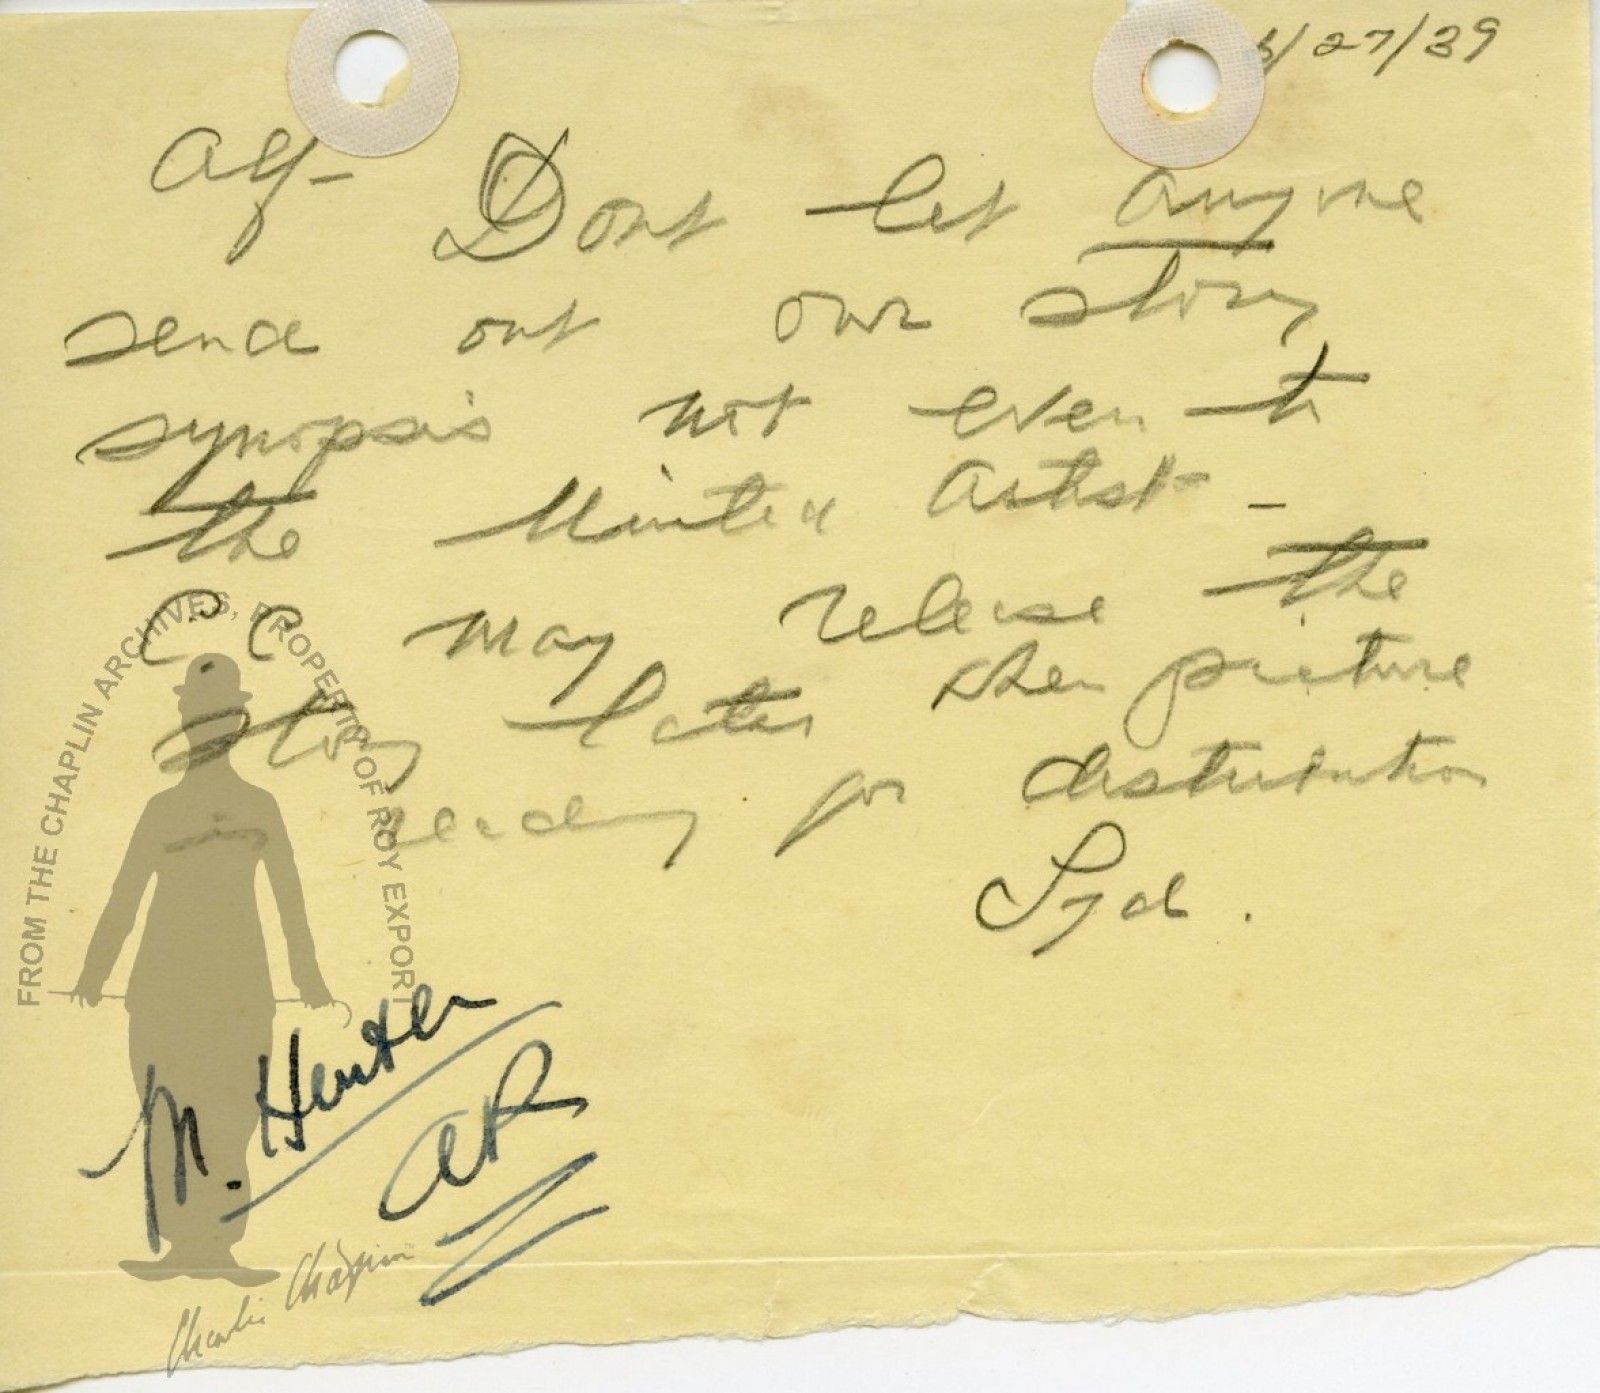 /27/39
Alf- Dont let anyone
send out our story
synopsis not even to
the United Artist -
C.C may release the
story later when picture
is ready for distribution
Syd.
M. Hunter
AR
FROM THE CHAPLIN ARCHIVES, PROPERTY OF ROY EXPORT
Charlie Chaplin